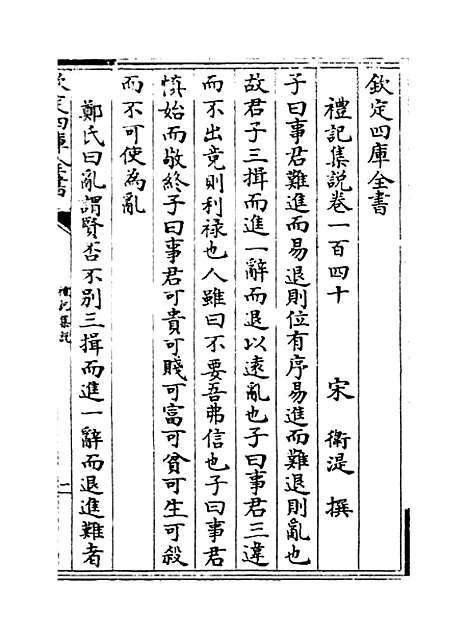 欽定四庫全書
禮記集說卷一百四十　宋　衛湜　撰
子曰事君難進而易退則位有序易進而難退則亂也
故君子三揖而進一辭而退以遠亂也子曰事君三違
而不出竟則利祿也人雖曰不要吾弗信也子曰事君
慎始而敬終子曰事君可貴可賤可富可貧可生可殺
而不可使為亂
鄭氏曰亂謂賢否不別三揖而進一辭而退進難者
欽定四庫全書
禮記集說
一